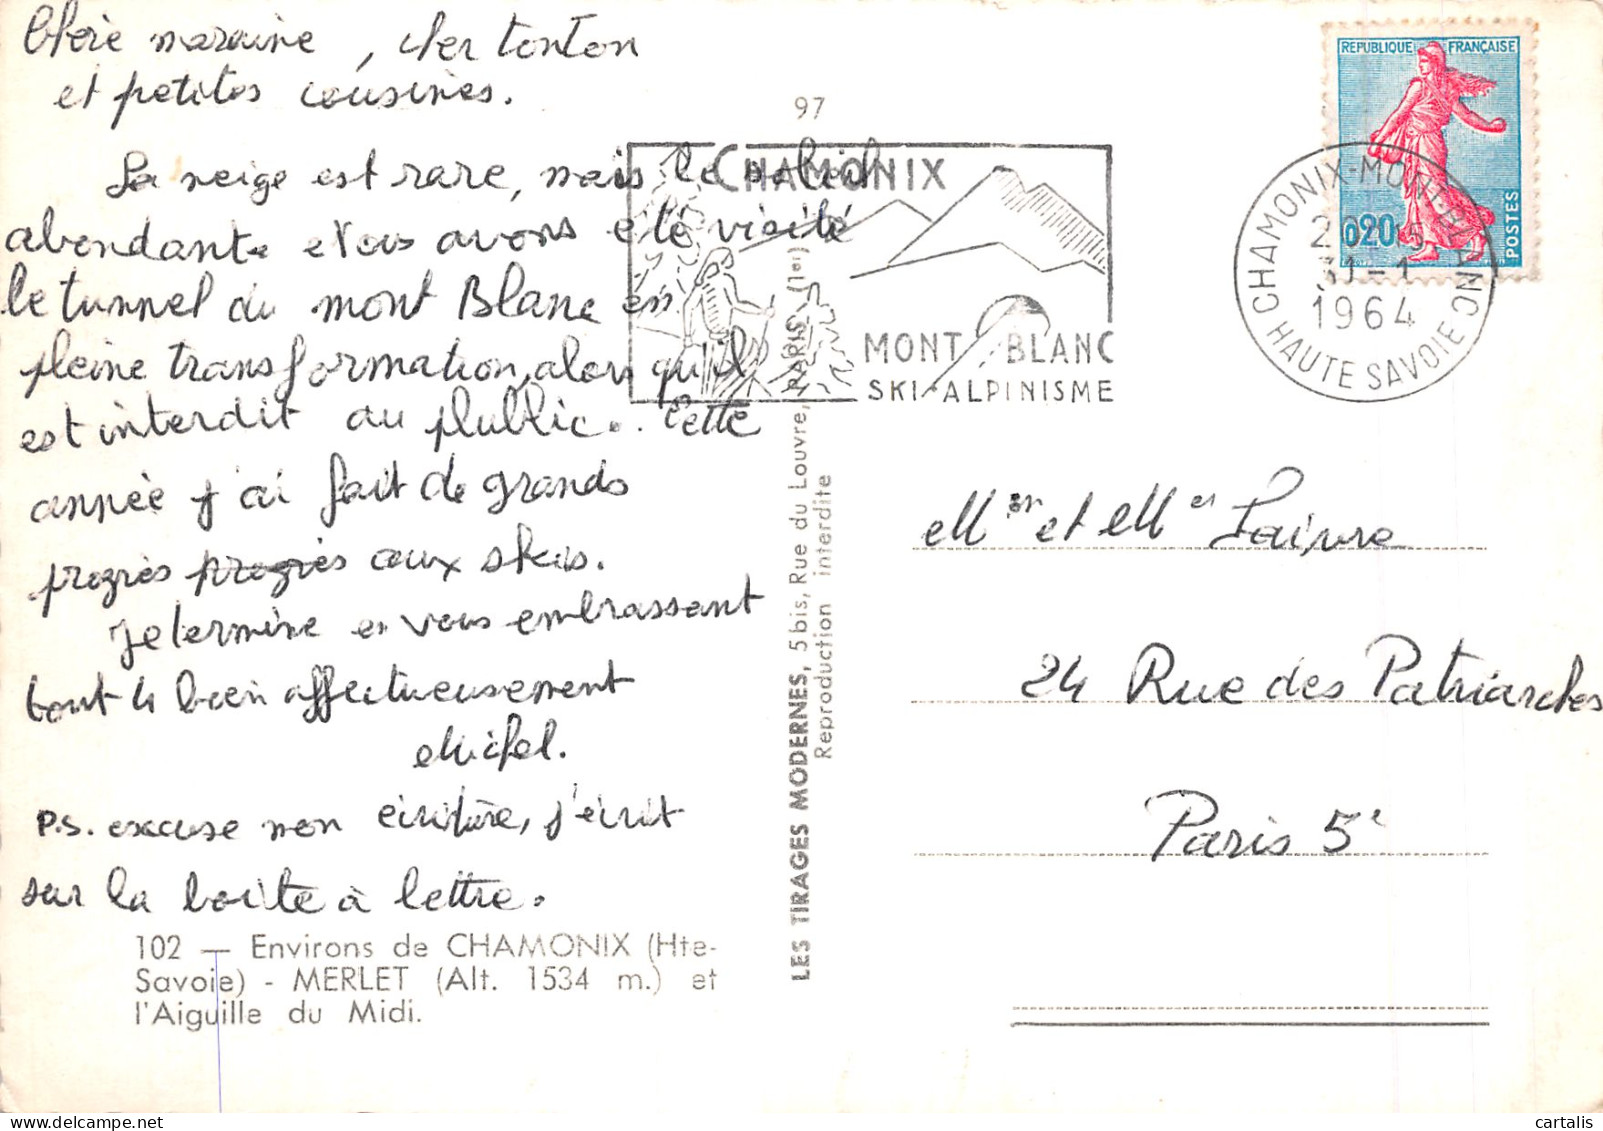 Chère marraine, cher tonton
et petites cousines.
La neige est rare, mais le soleil
abondant. Nous avons été visité
le tunnel du mont Blanc en
pleine transformation, alors qu'il
est interdit au plublic. Cette
année j'ai fait de grands
progrès progrès aux skis.
Je termine en vous embrassant
tout le bien affectueusement
Michel.
P.S. excuse mon écriture, j'écrit
sur la boite à lettre.
102 — Environs de CHAMONIX (Hte-
Savoie) - MERLET (Alt. 1534 m.) et
l'Aiguille du Midi.
97
LES TIRAGES MODERNES, 5 bis, Rue du Louvre, PARIS (1er)
Reproduction interdite
CHAMONIX
MONT BLANC
SKI-ALPINISME
REPUBLIQUE FRANÇAISE
0,20
POSTES
CHAMONIX-MONT-BLANC
31-1
1964
HAUTE SAVOIE
Mr et Me
24 Rue des Patriarches
Paris 5e
cartalis